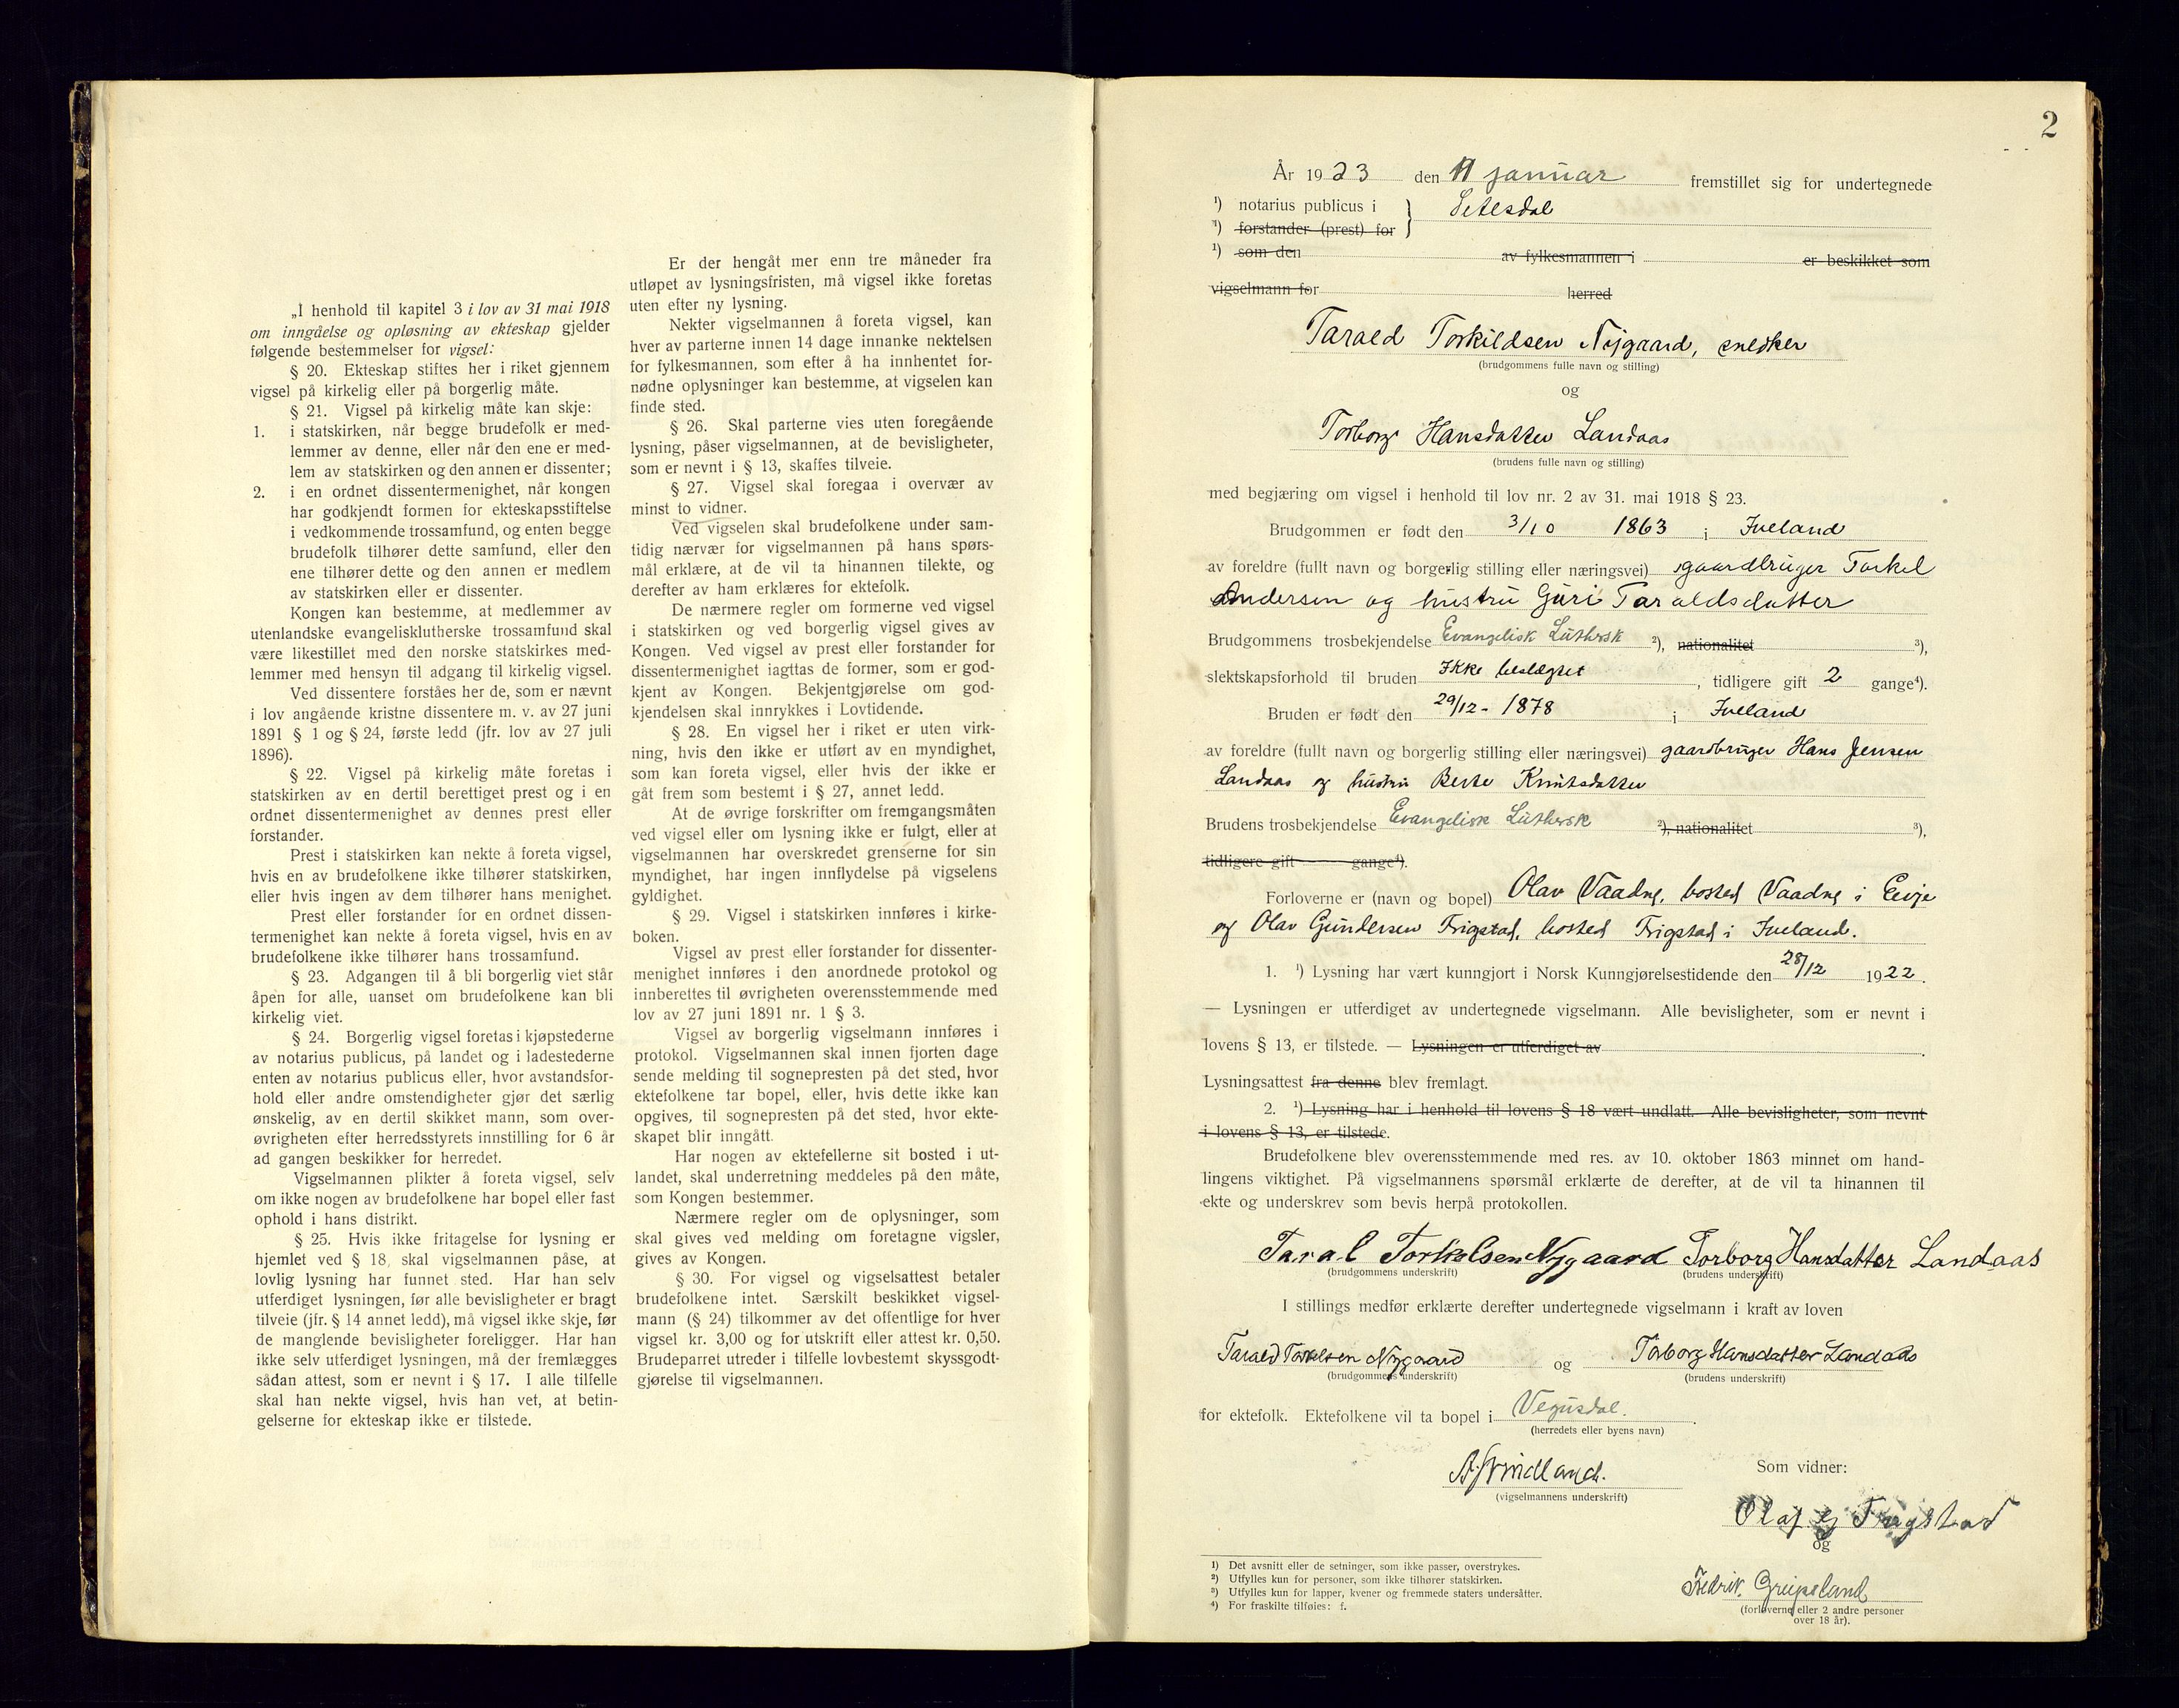 „I henhold til kapitel 3 i lov av 31 mai 1918
om inngåelse og opløsning av ekteskap gjelder
følgende bestemmelser for vigsel:
§ 20. Ekteskap stiftes her i riket gjennem
vigsel på kirkelig eller på borgerlig måte.
§ 21. Vigsel på kirkelig måte kan skje:
1. i statskirken, når begge brudefolk er med-
lemmer av denne, eller når den ene er med-
lem av statskirken og den annen er dissenter;
2. i en ordnet dissentermenighet, når kongen
har godkjendt formen for ekteskapsstiftelse
i vedkommende trossamfund, og enten begge
brudefolk tilhører dette samfund, eller den
ene tilhører dette og den annen er medlem
av statskirken eller er dissenter.
Kongen kan bestemme, at medlemmer av
utenlandske evangelisklutherske trossamfund skal
være likestillet med den norske statskirkes med-
lemmer med hensyn til adgang til kirkelig vigsel.
Ved dissentere forståes her de, som er nævnt
i lov angående kristne dissentere m. v. av 27 juni
1891 § 1 og § 24, første ledd (jfr. lov av 27 juli
1896).
§ 22. Vigsel på kirkelig måte foretas i
statskirken av en dertil berettiget prest og i en
ordnet dissentermenighet av dennes prest eller
forstander.
Prest i statskirken kan nekte å foreta vigsel,
hvis en av brudefolkene ikke tilhører statskirken,
eller hvis ingen av dem tilhører hans menighet.
Prest eller forstander for en ordnet dissen-
termenighet kan nekte å foreta vigsel, hvis en av
brudefolkene ikke tilhører hans trossamfund.
§ 23. Adgangen til å bli borgerlig viet står
åpen for alle, uanset om brudefolkene kan bli
kirkelig viet.
§ 24. Borgerlig vigsel foretas i kjøpstederne
av notarius publicus, på landet og i ladestederne
enten av notarius publicus eller, hvor avstandsfor-
hold eller andre omstendigheter gjør det særlig
ønskelig, av en dertil skikket mann, som over-
øvrigheten efter herredsstyrets innstilling for 6 år
ad gangen beskikker for herredet.
Vigselmannen plikter å foreta vigsel, selv
om ikke nogen av brudefolkene har bopel eller fast
ophold i hans distrikt.
§ 25. Hvis ikke fritagelse for lysning er
hjemlet ved § 18, skal vigselmannen påse, at
lovlig lysning har funnet sted. Har han selv
utferdiget lysningen, før alle bevisligheter er bragt
tilveie (jfr. § 14 annet ledd), må vigsel ikke skje, før
de manglende bevisligheter foreligger. Har han
ikke selv utferdiget lysningen, må der fremlægges
sådan attest, som er nevnt i § 17. I alle tilfelle
skal han nekte vigsel, hvis han vet, at betin-
gelserne for ekteskap ikke er tilstede.
Er der hengåt mer enn tre måneder fra
utløpet av lysningsfristen, må vigsel ikke foretas
uten efter ny lysning.
Nekter vigselmannen å foreta vigsel, kan
hver av parterne innen 14 dage innanke nektelsen
for fylkesmannen, som efter å ha innhentet for-
nødne oplysninger kan bestemme, at vigselen kan
finde sted.
§ 26. Skal parterne vies uten foregående
lysning, påser vigselmannen, at de bevisligheter,
som er nevnt i § 13, skaffes tilveie.
§ 27. Vigsel skal foregaa i overvær av
minst to vidner.
Ved vigselen skal brudefolkene under sam-
tidig nærvær for vigselmannen på hans spørs-
mål erklære, at de vil ta hinannen tilekte, og
derefter av ham erklæres for ektefolk.
De nærmere regler om formerne ved vigsel
i statskirken og ved borgerlig vigsel gives av
Kongen. Ved vigsel av prest eller forstander for
dissentermenighet iagttas de former, som er god-
kjent av Kongen. Bekjentgjørelse om god-
kjendelsen skal innrykkes i Lovtidende.
§ 28. En vigsel her i riket er uten virk-
ning, hvis den ikke er utført av en myndighet,
som kan foreta vigsel, eller hvis der ikke er
gåt frem som bestemt i § 27, annet ledd.
At de øvrige forskrifter om fremgangsmåten
ved vigsel eller om lysning ikke er fulgt, eller at
vigselmannen har overskredet grenserne for sin
myndighet, har ingen innflydelse på vigselens
gyldighet.
§ 29. Vigsel i statskirken innføres i kirke-
boken.
Vigsel av prest eller forstander for dissenter-
menighet innføres i den anordnede protokol og
innberettes til øvrigheten overensstemmende med
lov av 27 juni 1891 nr. 1 § 3.
Vigsel av borgerlig vigselmann innføres i
protokol. Vigselmannen skal innen fjorten dage
sende melding til sognepresten på det sted, hvor
ektefolkene tar bopel, eller, hvis dette ikke kan
opgives, til sognepresten på det sted, hvor ekte-
skapet blir inngått.
Har nogen av ektefellerne sit bosted i ut-
landet, skal underretning meddeles på den måte,
som Kongen bestemmer.
Nærmere regler om de oplysninger, som
skal gives ved melding om foretagne vigsler,
gives av Kongen.
§ 30. For vigsel og vigselsattest betaler
brudefolkene intet. Særskilt beskikket vigsel-
mann (§ 24) tilkommer av det offentlige for hver
vigsel kr. 3,00 og for utskrift eller attest kr. 0,50.
Brudeparret utreder i tilfelle lovbestemt skyssgodt-
gjørelse til vigselmannen.
2
År 1923 den 11 januar fremstillet sig for undertegnede
¹) notarius publicus i } Setesdal
¹) forstander (prest) for
¹) som den av fylkesmannen i er beskikket som
vigselmann for herred
Tarald Torkildsen Nygaard, snedker
(brudgommens fulle navn og stilling)
og
Torborg Hansdatter Landaas
(brudens fulle navn og stilling)
med begjæring om vigsel i henhold til lov nr. 2 av 31. mai 1918 § 23.
Brudgommen er født den 3/10 1863 i Iveland
av foreldre (fullt navn og borgerlig stilling eller næringsvei) gaardbruger Torkel
Andersen og hustru Guri Taraldsdatter
Brudgommens trosbekjendelse Evangelisk Luthersk ²), nationalitet ³),
slektskapsforhold til bruden Ikke beslægtet, tidligere gift 2 gange⁴).
Bruden er født den 29/12- 1878 i Iveland
av foreldre (fullt navn og borgerlig stilling eller næringsvei) gaardbruger Hans Jensen
Landaas og hustru Berte Knutsdatter
Brudens trosbekjendelse Evangelisk Luthersk ²), nationalitet ³),
tidligere gift gange⁴).
Forloverne er (navn og bopel) Olav Vaadne, bosted Vaadne i Evje
og Olav Gundersen Frigstad, bosted Frigstad i Iveland.
1. ¹) Lysning har vært kunngjort i Norsk Kunngjørelsestidende den 28/12 1922.
— Lysningen er utferdiget av undertegnede vigselmann. Alle bevisligheter, som er nevnt i
lovens § 13, er tilstede. — Lysningen er utferdiget av
Lysningsattest fra denne blev fremlagt.
2. ¹) Lysning har i henhold til lovens § 18 vært undlatt. Alle bevisligheter, som nevnt
i lovens § 13, er tilstede.
Brudefolkene blev overensstemmende med res. av 10. oktober 1863 minnet om hand-
lingens viktighet. På vigselmannens spørsmål erklærte de derefter, at de vil ta hinannen til
ekte og underskrev som bevis herpå protokollen.
Taral Torkelsen Nygaard Torborg Hansdatter Landaas
(brudgommens underskrift) (brudens underskrift)
I stillings medfør erklærte derefter undertegnede vigselmann i kraft av loven
Tarald Torkelsen Nygaard og Torborg Hansdatter Landaas
(brudgommens underskrift) (brudens underskrift)
for ektefolk. Ektefolkene vil ta bopel i Vegusdal.
(herredets eller byens navn)
Som vidner:
(vigselmannens underskrift)
Olaf G Frigstad
og
Fredrik Greipsland
(forloverne eller 2 andre personer
over 18 år).
¹) Det avsnitt eller de setninger, som ikke passer, overstrykes.
²) Utfylles kun for personer, som ikke tilhører statskirken.
³) Utfylles kun for lapper, kvener og fremmede staters undersåtter.
⁴) For fraskilte tilføies: f.